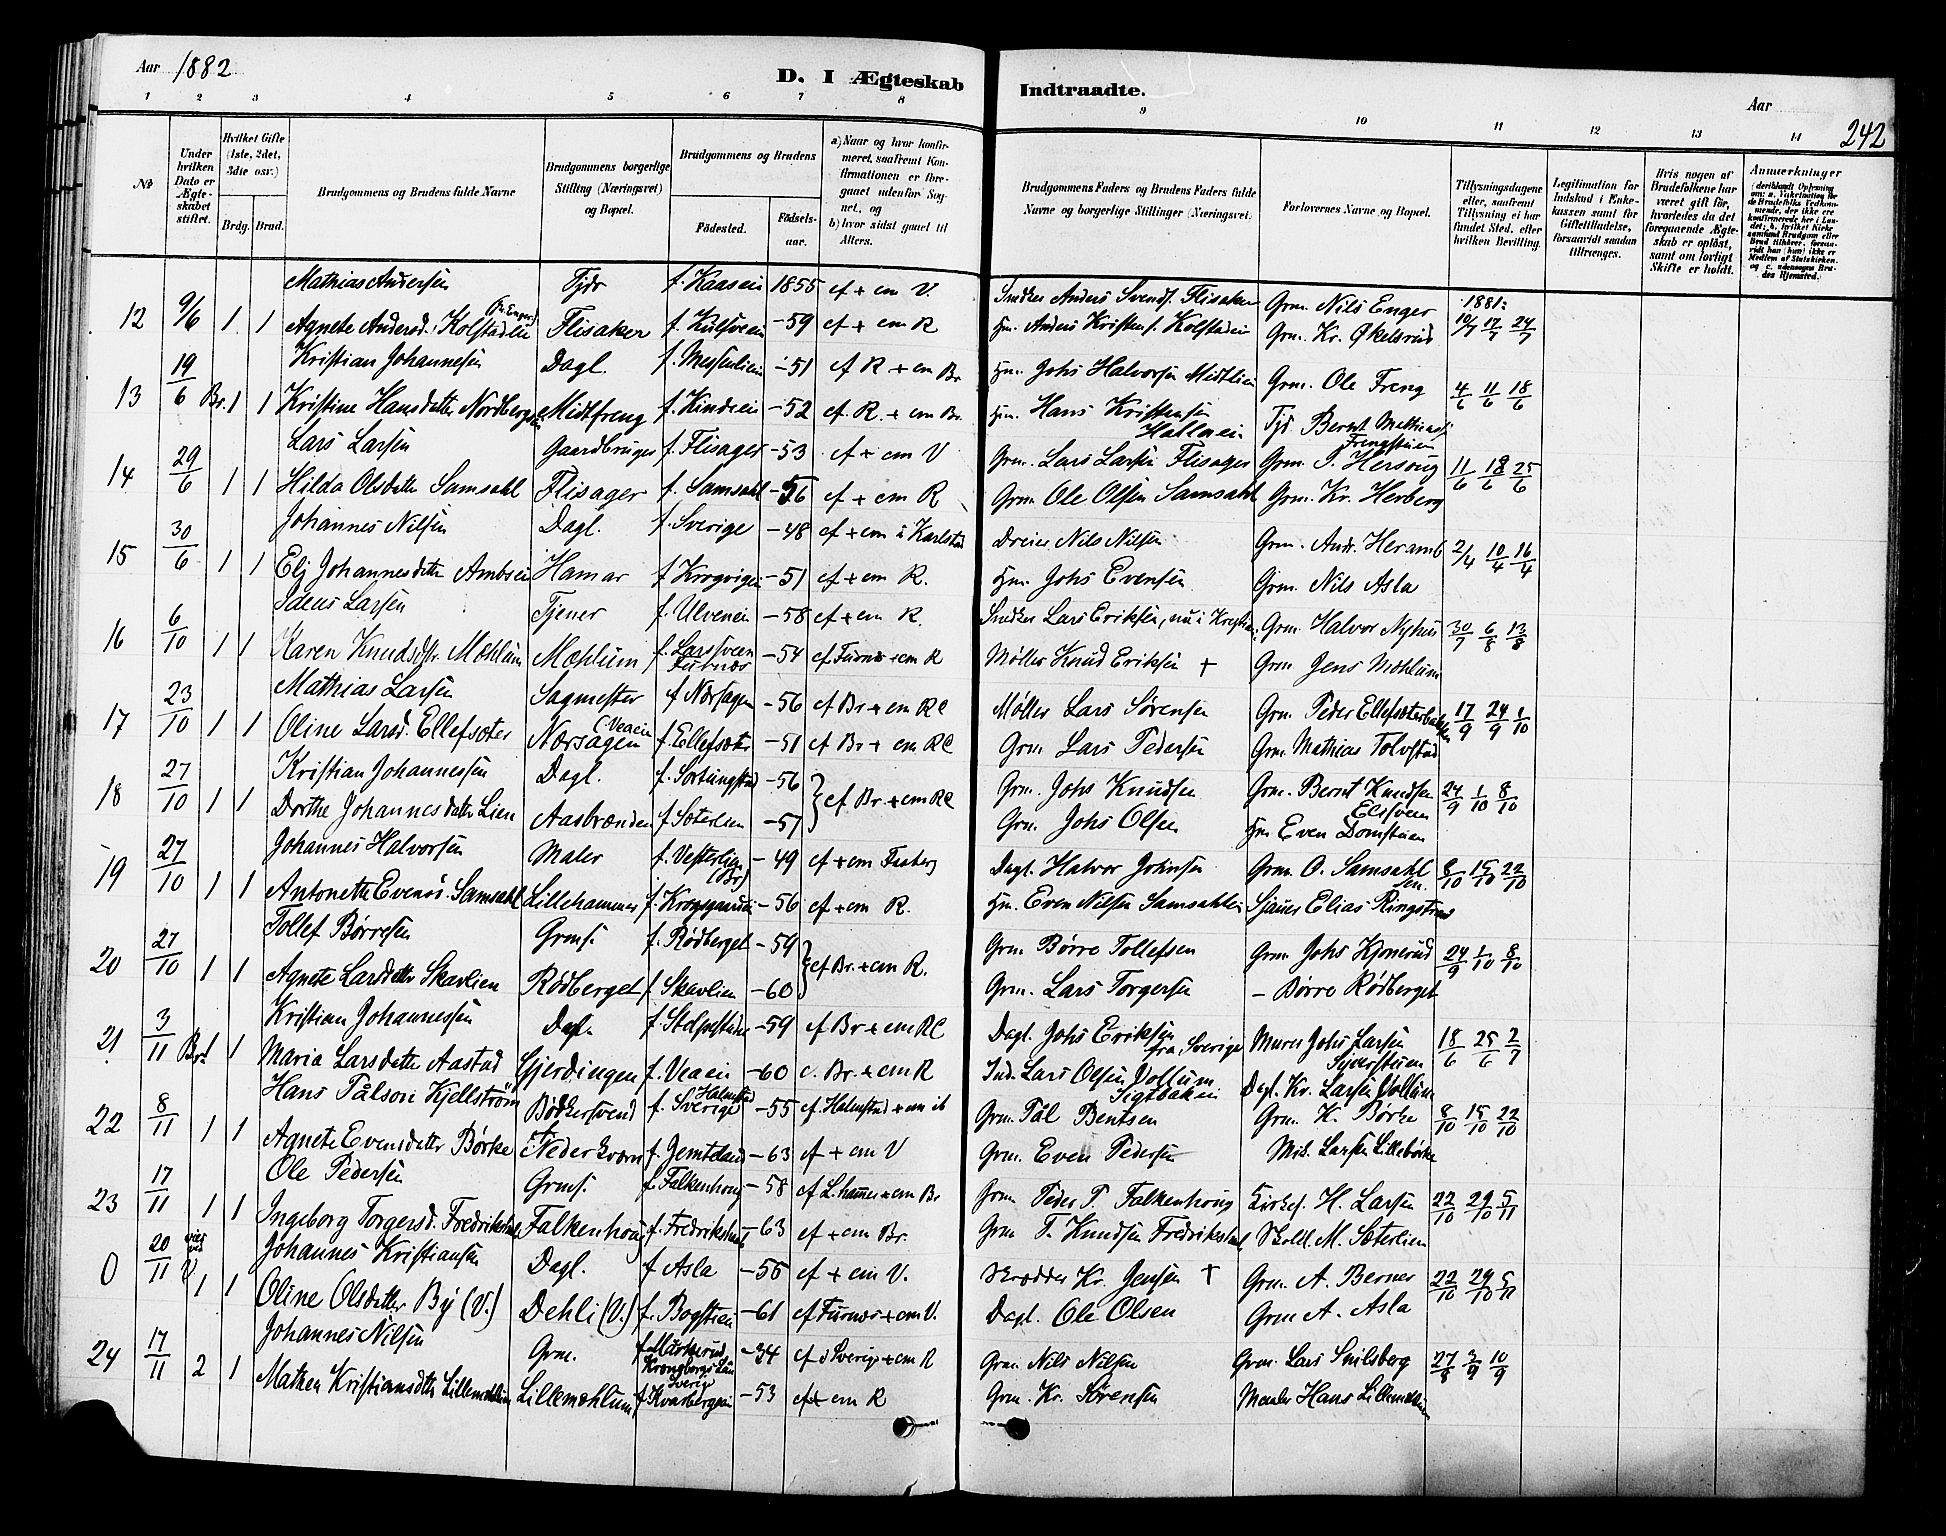 Aar 1882
D. I Ægteskab Indtraadte.
Aar
242
1 2 3 4 5 6 7 8 9 10 11 12 13 14
№
Under hvilken Dato er Ægteskabet stiftet.
Hvilket Gifte (1ste, 2det, 3die osv.)
Brdg. Brud.
Brudgommens og Brudens fulde Navne
Brudgommens borgerlige Stilling (Næringsvei) og Bopæl.
Brudgommens og Brudens
Födested.
Födsels-aar.
a) Naar og hvor konfirmeret, saafremt Konfirmationen er foregaaet udenfor Sognet, og
b) hvor sidst gaaet til Alters.
Brudgommens Faders og Brudens Faders fulde Navne og borgerlige Stillinger (Næringsvei).
Forlovernes Navne og Bopæl.
Tillysningsdagene eller, saafremt Tillysning ei har fundet Sted, efter hvilken Bevilling.
Legitimation for Indskud i Enkekassen samt for Giftetilladelse, forsaavidt saadan tiltrænges.
Hvis nogen af Brudefolkene har været gift før, hvorledes da det foregaaende Ægteskab er opløst, samt om lovligt Skifte er holdt.
Anmærkninger
Mathias Andersen Tjdr f. Kaaseie 1855 cf + cm V. Snedker Anders Svends. Flisaker Grm. Nils Enger 1881:
12 9/6 1 1 Agnete Andersd. Kolstadeie Flisaker f. Kulsveen -59 cf + cm R Hm. Anders Kristens. Kolstadeie Grm. Kr. Økelsrud 10/7 17/7 24/7
Kristian Johannesen Dagl. f. Messenlien -51 cf R + cm Br Hm. Johs Halvorsen Midtlien Grm. Ole Freng
13 19/6 Br. 1 1 Kristine Hansdatter Nordbergs Midtfreng f. Kindseie -52 cf. R. + cm Br. Hm. Hans Kristensen Tjd. Bernt Mathiass. Frengstuen 4/6 11/6 18/6
Lars Larsen Gaardbruger f. Flisager -53 cf + cm V Grm. Lars Larsen Flisager Grm. P. Hersoug
14 29/6 1 1 Hilda Olsdatter Samsahl Flisager f. Samsahl -56 cf + cm R Grm Ole Olsen Samsahl Grm. Kr. Herberg 11/6 18/6 25/6
Johannes Nilsen Dagl. f. Sverige -48 cf + cm i Karlstad Dreier Nils Nilsen Grm. Andr. Heramb
15 30/6 1 1 Elj Johannesdatter Ambseie Hamar f Krogvigen -51 cf + cm R. Hm. Johs Evensen Grm. Nils Asla 2/4 10/4 16/4
Ideus Larsen Tjener f. Ulveneie -58 cf + cm R. Snedker Lars Eriksen, nu i Kristian. Grm. Halvor Nyhus
16 6/10 1 1 Karen Knudsdtr. Mæhlum Mæhlum f. Larssveen Furnæs -54 cf Furnæs + cm R Møller Knud Eriksen + Grm Jens Mæhlum 30/7 6/8 13/8
Mathias Larsen Sagmester f Nærsagen -56 cf Br + cm R Møller Lars Sørensen Grm. Peder Ellefsæterbakken
17 23/10 1 1 Oline Larsd. Ellefsæter Nærsagen (Veaeie f. Ellefsæter -51 cf Br + cm R Grm. Lars Pedersen Grm. Mathias Tolvstad 17/9 24/9 1/10
Kristian Johannessen Dagl. f. Sortungstad -56 Grm. Johs Knudsen Grm. Bernt Knudsen Elisveen
18 27/10 1 1 Dorthe Johannesdatter Lien Aasbrænden f Sæterlien -57 cf Br. + cm R Grm Johs Olsen Hm Even Domstuen 24/9 1/10 8/10
Johannes Halvorsen Maler f. Vesterlien (Br) -49 cf + cm Faaberg Dagl. Halvor Johnsen Grm. O. Samsahl sen.
19 27/10 1 1 Antonette Evensd. Samsahl Lillehammer f. Krogsgaardeie -56 cf + cm R. Hm. Even Nilsen Samsahleie Sjauer Elias Ringstrøm 8/10 15/10 22/10
Tollef Børresen Grms. f. Rødberget -59 Grm Børre Tollefsen Grm. Johs Kjønerud
20 27/10 1 1 Agnete Larsdatter Skavlien Rødberget f. Skavlien -60 cf Br. + cm R. Grm. Lars Torgersen — Børre Rødberget 24/9 1/10 8/10
Kristian Johannessen Dagl. f. Stolpestuen -59 cf Br + cm R Dagl. Johs Eriksen fra Sverige Murer Johs Larsen
21 3/11 Br. 1 1 Maria Larsdatter Aastad Gjerdingen f. Veaeie -60 c. Br. + cm R Ind. Lars Olsen Jollum Dagl. Kr. Larsen Jollum 18/6 25/6 2/7
Hans Pålson Kjellström Bødkersvend f. Sverige Halmstad -55 cf. Halmstad + cm ib Grm. Pål Bentsen Grm. K. Børke
22 8/11 1 1 Agnete Evensdatter Børke Nederkværn f. Jemteland -63 cf + cm V Grm. Even Pedersen Mik. Larsen Lillebørke 8/10 15/10 22/10
Ole Pedersen Grms. f. Falkenhoug -58 cf L.hamer + cm Br Grm Peder P. Falkenhoug Kirkes. H. Larsen
23 17/11 1 1 Ingeborg Torgersd. Fredrikstad Falkenhoug f. Fredrikstad -63 cf + cm Br. Grm T. Knudsen Fredrikstad Skoll. M. Sæterlien 22/10 29/10 5/11
Johannes Kristiansen Dagl. f Asla -55 cf + cm V. Skrædder Kr. Jensen + Grm. A. Berner
0 20/11 viet ved V 1 1 Oline Olsdatter By (V.) Dehli (V.) f. Bogstieie -61 cf Furnæs + cm V. Dagl. Ole Olsen Grm A. Asla 22/10 29/10 5/11
Johannes Nilsen Grm. f. Markerud Kronobergs Län Sverige -34 cf i Sverige + cm R Grm. Nils Nilsen Grm. Lars Snilsberg
24 17/11 2 1 Mathea Kristiansdtr Lillemæhlum Lillemæhlum f. Kvarbergeie -53 cf + cm R Grm. Kr. Sørensen Maaler Hans Lillemæhlum 27/8 3/9 10/9